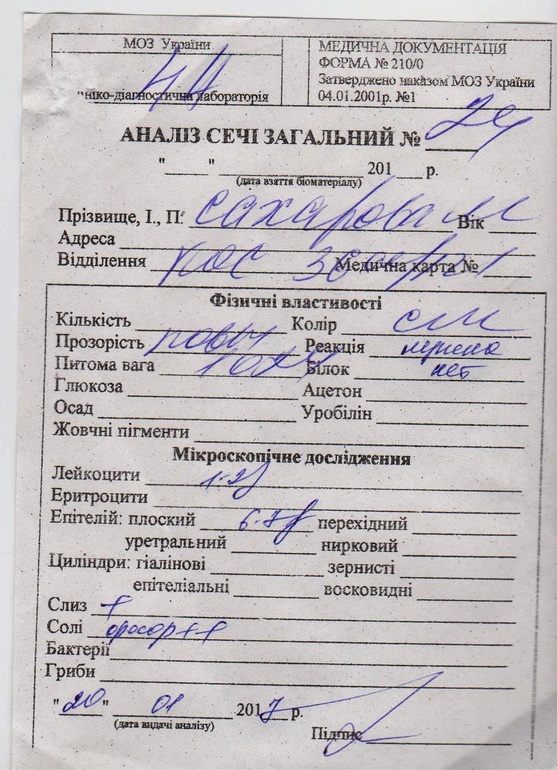 МОЗ України
МЕДИЧНА ДОКУМЕНТАЦІЯ
ФОРМА № 210/0
Затверджено наказом МОЗ України
04.01.2001р. №1
ніко-діагностична лабораторія
АНАЛІЗ СЕЧІ ЗАГАЛЬНИЙ № 24
"____" ____ 201__ р.
(дата взяття біоматеріалу)
Прізвище, І., П. Сахарова М Вік
Адреса
Відділення Медична карта №
Фізичні властивості
Кількість Колір с/ж
Прозорість Реакція
Питома вага 1024 Білок нет
Глюкоза Ацетон
Осад Уробілін
Жовчні пігменти
Мікроскопічне дослідження
Лейкоцити 1-2
Еритроцити
Епітелій: плоский 6-7 перехідний
уретральний нирковий
Циліндри: гіалінові зернисті
епітеліальні восковидні
Слиз +
Солі ++
Бактерії
Гриби
"20" 01 2017 р.
(дата видачі аналізу)
Підпис